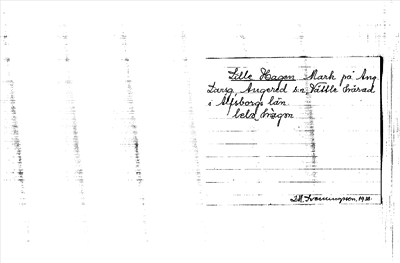 Lille Hagen Mark på Ang.
Larsg, Angered s:n, Vättle härad
i Älfsborgs län.
bela hagm
D.M. Svenningson, 1921.